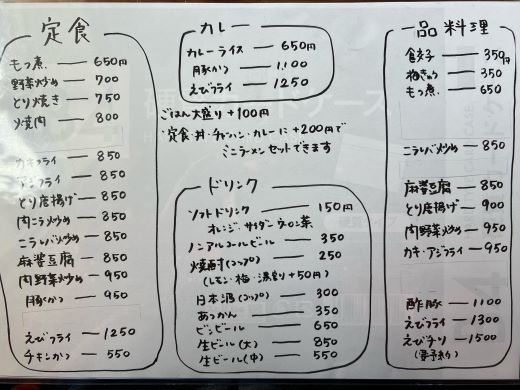 定食
もつ煮 — 650円
野菜炒め — 700
とり焼き — 750
焼肉 — 800
カキフライ — 850
アジフライ — 850
とり唐揚げ — 850
肉ニラ炒め — 850
ニラレバ炒め — 850
麻婆豆腐 — 850
肉野菜炒め — 950
豚かつ — 950
えびフライ — 1250
チキンかつ — 550
カレー
カレーライス — 650円
豚かつ — 1,100
えびフライ — 1250
ごはん大盛り +100円
・定食・丼・チャーハン・カレーに +200円で
ミニラーメンセットできます
ドリンク
ソフトドリンク — 150円
オレンジ・サイダー・ウーロン茶
ノンアルコールビール — 350
焼酎(コップ) — 250
(レモン・梅・湯割り+50円)
日本酒(コップ) — 300
あつかん — 350
ビンビール — 650
生ビール(大) — 850
生ビール(中) — 550
一品料理
餃子 — 350円
梅きゅう — 350
もつ煮 — 650
ニラレバ炒め — 850
麻婆豆腐 — 850
とり唐揚げ — 900
肉野菜炒め — 950
カキ・アジフライ — 950
酢豚 — 1100
えびフライ — 1300
えびチリ — 1500
(要予約)